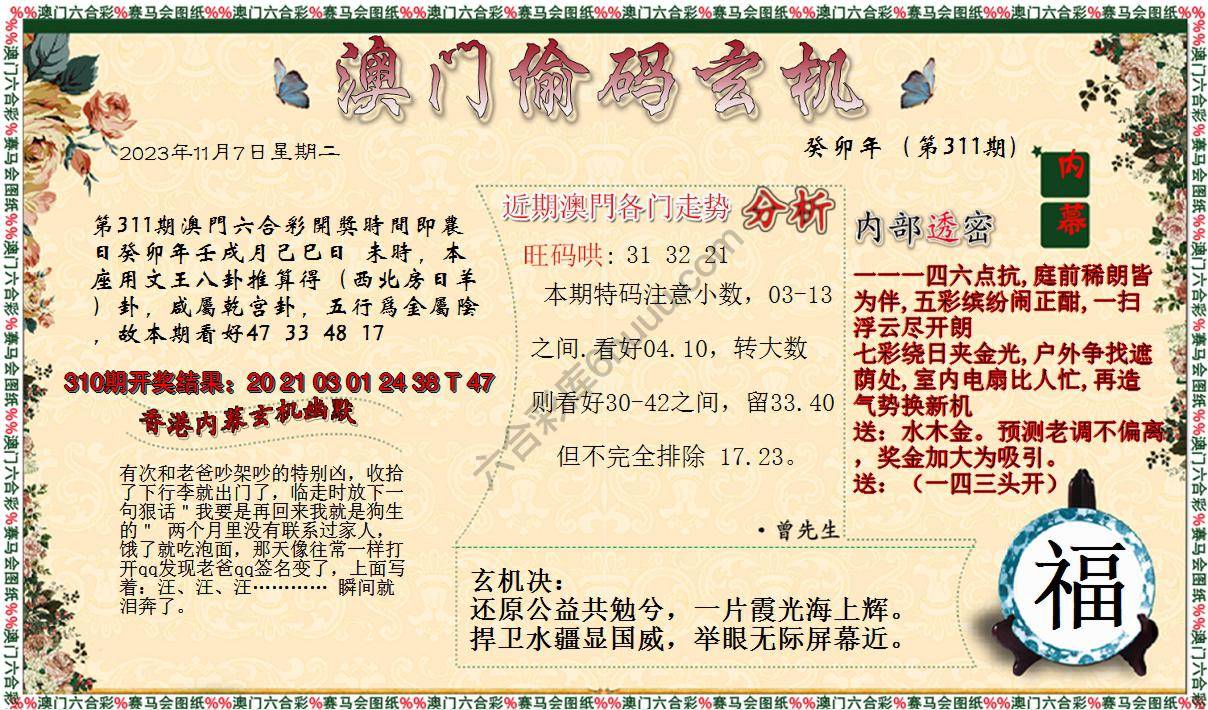 %%澳门六合彩%赛马会图纸%%澳门六合彩%赛马会图纸%%澳门六合彩%赛马会图纸%%澳门六合彩%赛马会图纸%%澳门六合彩%赛马会图纸%%澳门六合彩%赛马会图纸%%
澳门偷码玄机
2023年11月7日星期二
癸卯年（第311期）
内幕
第311期澳門六合彩開獎時間即農
日癸卯年壬戌月己巳日 未時，本
座用文王八卦推算得（西北房日羊
）卦，咸屬乾宫卦，五行爲金屬陰
，故本期看好47 33 48 17
310期开奖结果：20 21 03 01 24 38 T 47
香港内幕玄机幽默
有次和老爸吵架吵的特别凶，收拾
了下行李就出门了，临走时放下一
句狠话＂我要是再回来我就是狗生
的＂ 两个月里没有联系过家人，
饿了就吃泡面，那天像往常一样打
开qq发现老爸qq签名变了，上面写
着：汪、汪、汪………… 瞬间就
泪奔了。
近期澳門各门走势 分析
旺码哄: 31 32 21
本期特码注意小数，03-13
之间.看好04.10，转大数
则看好30-42之间，留33.40
但不完全排除 17.23。
·曾先生
玄机决：
还原公益共勉兮，一片霞光海上辉。
捍卫水疆显国威，举眼无际屏幕近。
内部透密
一一一四六点抗,庭前稀朗皆
为伴,五彩缤纷闹正酣,一扫
浮云尽开朗
七彩绕日夹金光,户外争找遮
荫处,室内电扇比人忙,再造
气势换新机
送：水木金。预测老调不偏离
，奖金加大为吸引。
送：（一四三头开）
福
%%澳门六合彩%赛马会图纸%%澳门六合彩%赛马会图纸%%澳门六合彩%赛马会图纸%%澳门六合彩%赛马会图纸%%澳门六合彩%赛马会图纸%%澳门六合彩%赛马会图纸%%